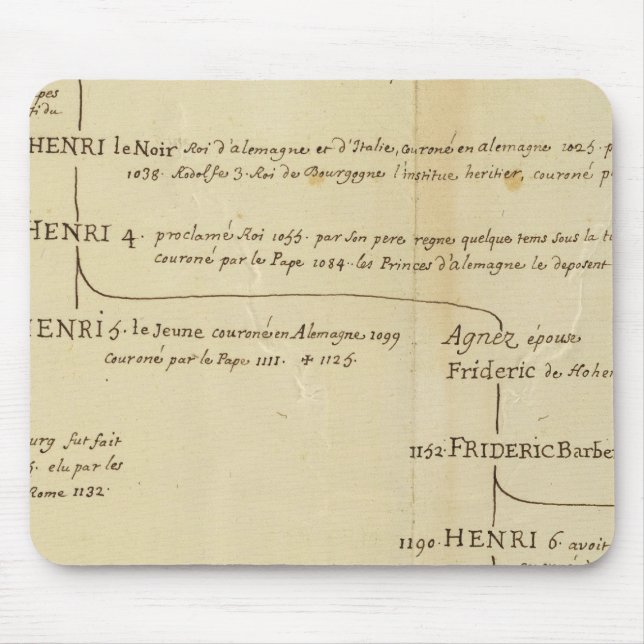 pes
ti du
HENRI le Noir Roi d'alemagne et d'Italie, couroné en alemagne 1025. p
1038. Rodolfe 3. Roi de Bourgogne l'institue heritier, couroné p
HENRI 4. proclamé Roi 1055. par son pere regne quelque tems sous la t
couroné par le Pape 1084. les Princes d'alemagne le deposent
HENRI 5. le Jeune couroné en Alemagne 1099
Couroné par le Pape 1111. ✠ 1125.
Agnez épouse
Frideric de Hohen
urg fut fait
5. elu par les
Rome 1132.
1152. FRIDERIC Barbe
1190. HENRI 6. avoit